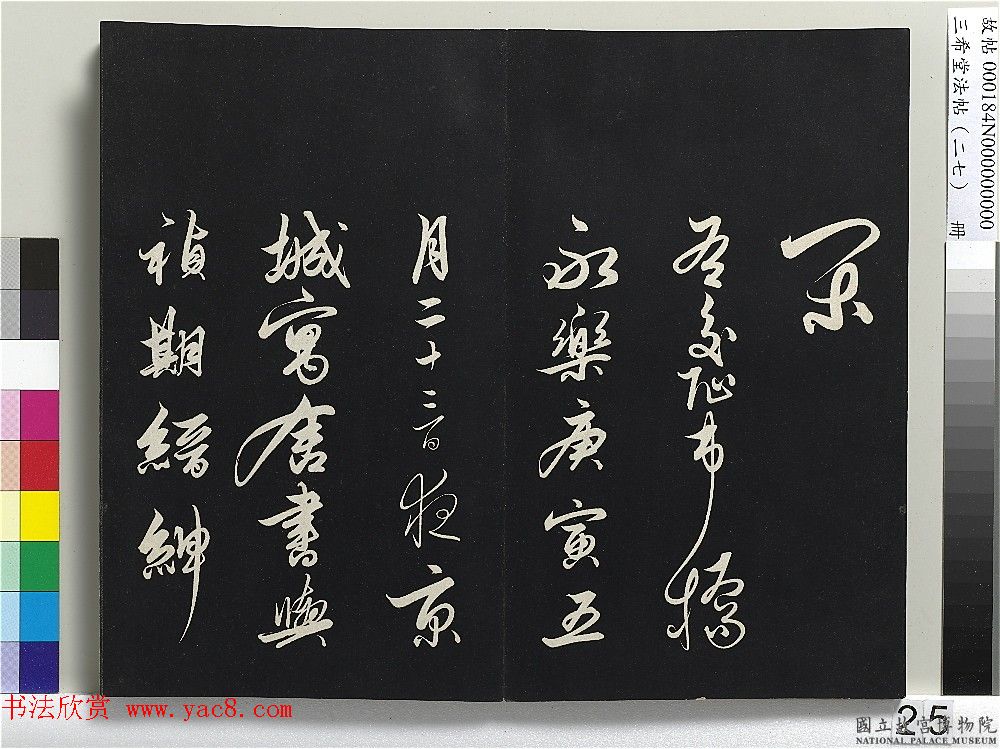 閑
右交阯市橋
永樂庚寅五
月二十三日夜京
城寓舍書與
禎期縉紳
故帖 000184N000000000
三希堂法帖(二七) 冊
25
书法欣赏 www.yac8.com
國立故宮博物院
NATIONAL PALACE MUSEUM